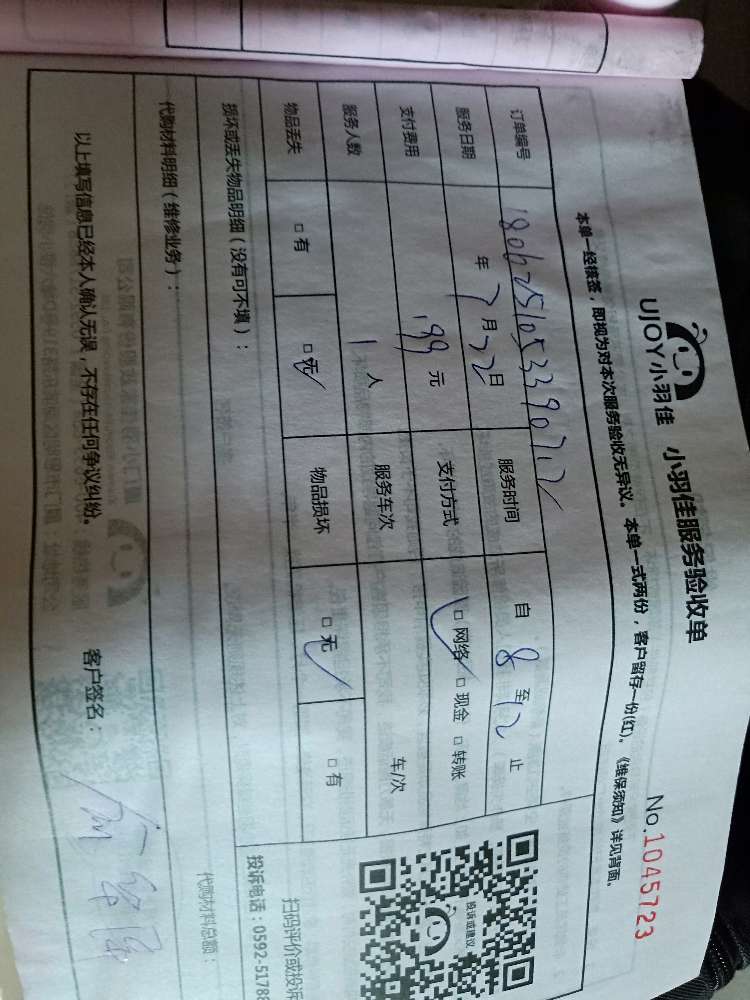 UJOY小羽佳 小羽佳服务验收单 No.1045723
本单一经核签，即视为对本次服务验收无异议。本单一式两份，客户留存一份(红)。《维保须知》详见背面。
订单编号 服务时间 自 8 至 12 止
服务日期 年 7 月 22 日 支付方式 □网络 □现金 □转账
支付费用 199 元 服务车次 车/次
服务人数 1 人
物品丢失 □有 □无 物品损坏 □无 □有
损坏或丢失物品明细（没有可不填）：
代购材料明细（维修业务）：
代购材料总额：
以上填写信息已经本人确认无误，不存在任何争议纠纷。 客户签名：
投诉或建议
扫码评价或投诉
投诉电话：0592-5178